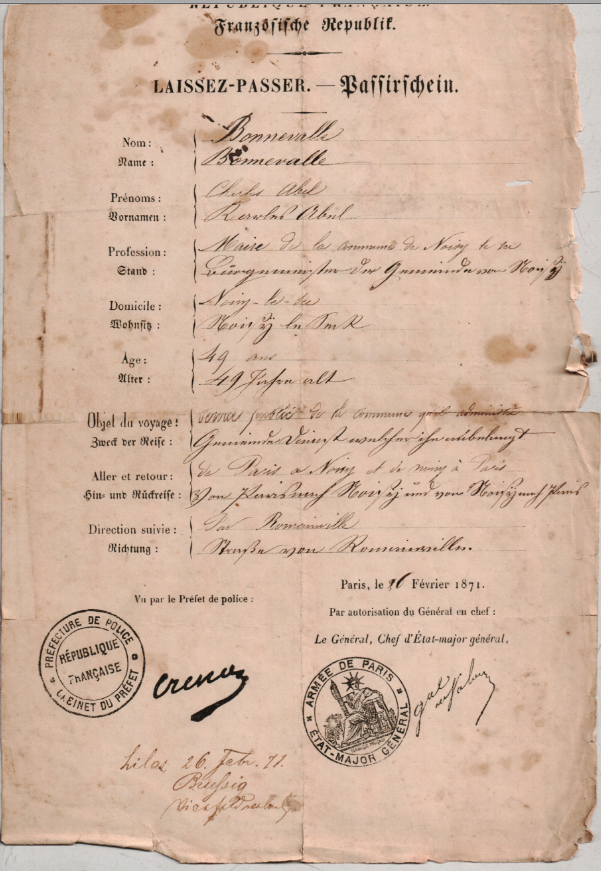 RÉPUBLIQUE FRANÇAISE.
Französische Republik.
LAISSEZ-PASSER. — Passirschein.
Nom : Bonnevalle
Name : Bonnevalle
Prénoms : Charles Abel
Vornamen : Karolus Abel
Profession : Maire de la commune de Noisy le sec
Stand : Bürgermeister der Gemeinde von Noisy
Domicile : Noisy-le-sec
Wohnsitz : Noisy le Seck
Age : 49 ans
Alter : 49 Jahre alt
Objet du voyage : service public de la commune qu'il administre
Zweck der Reise : Gemeinde Dienst welcher ihn anbelangt
Aller et retour : de Paris à Noisy et de noisy à Paris
Hin- und Rückreise : Von Paris nach Noisy und von Noisy nach Paris
Direction suivie : Par Romainville
Richtung : Straße von Romainville.
Paris, le 26 Février 1871.
Vu par le Préfet de police :
Par autorisation du Général en chef :
Le Général, Chef d'État-major général,
PRÉFECTURE DE POLICE
RÉPUBLIQUE
FRANÇAISE
CABINET DU PRÉFET
ARMÉE DE PARIS
ÉTAT-MAJOR GÉNÉRAL
Lilas 26. Febr. 71.